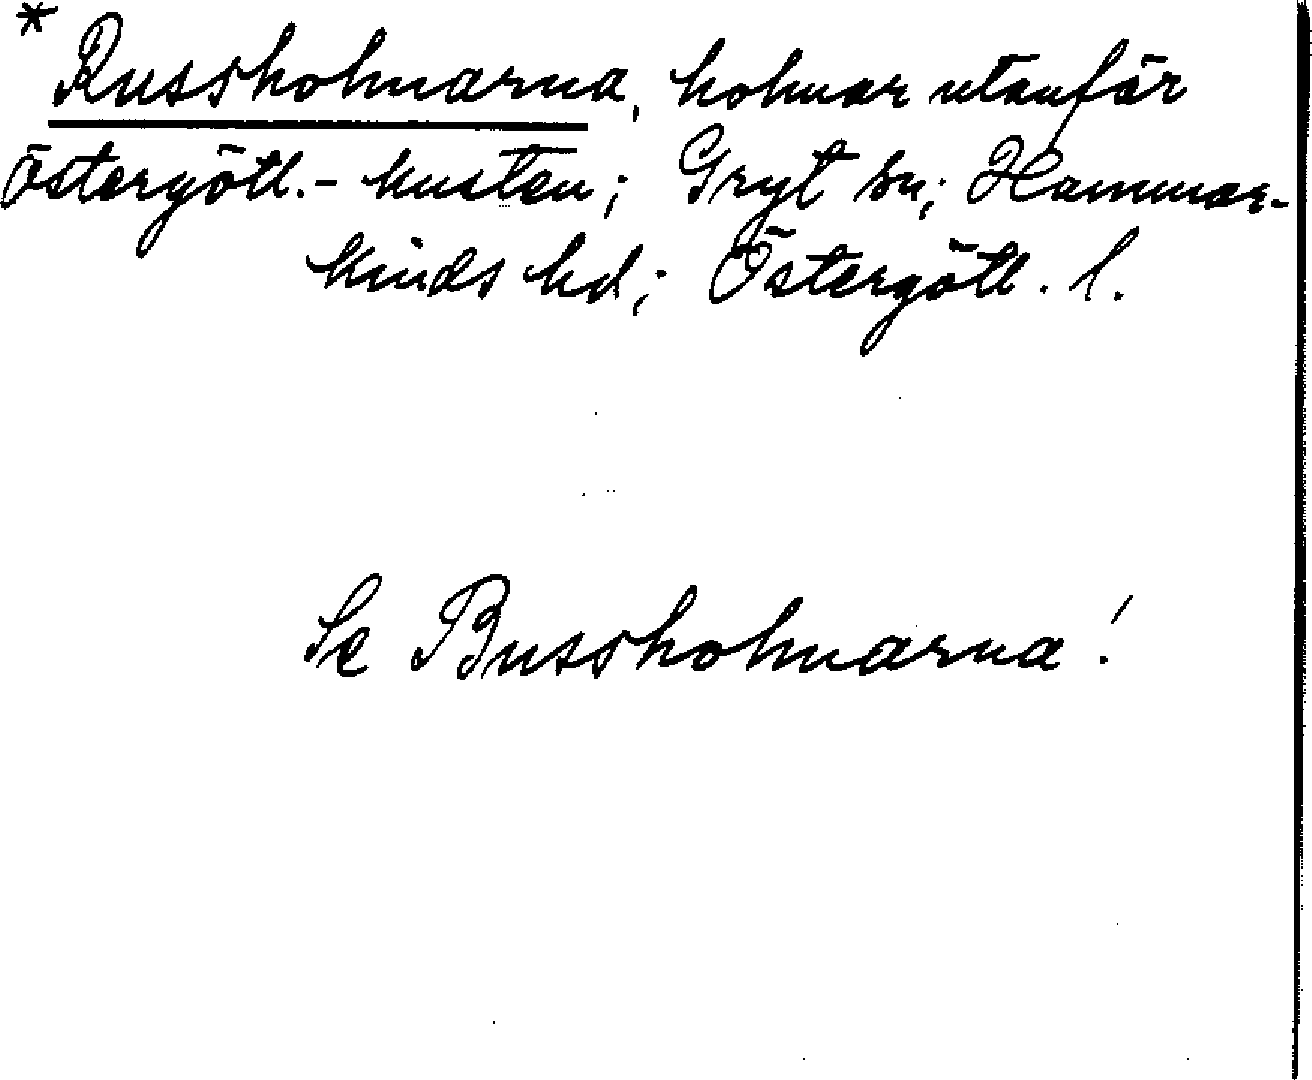 * Russholmarna, holmar utanför
Östergötl.- kusten; Gryt sn; Hammar-
kinds hd; Östergötl. l.
Se Bussholmarna!